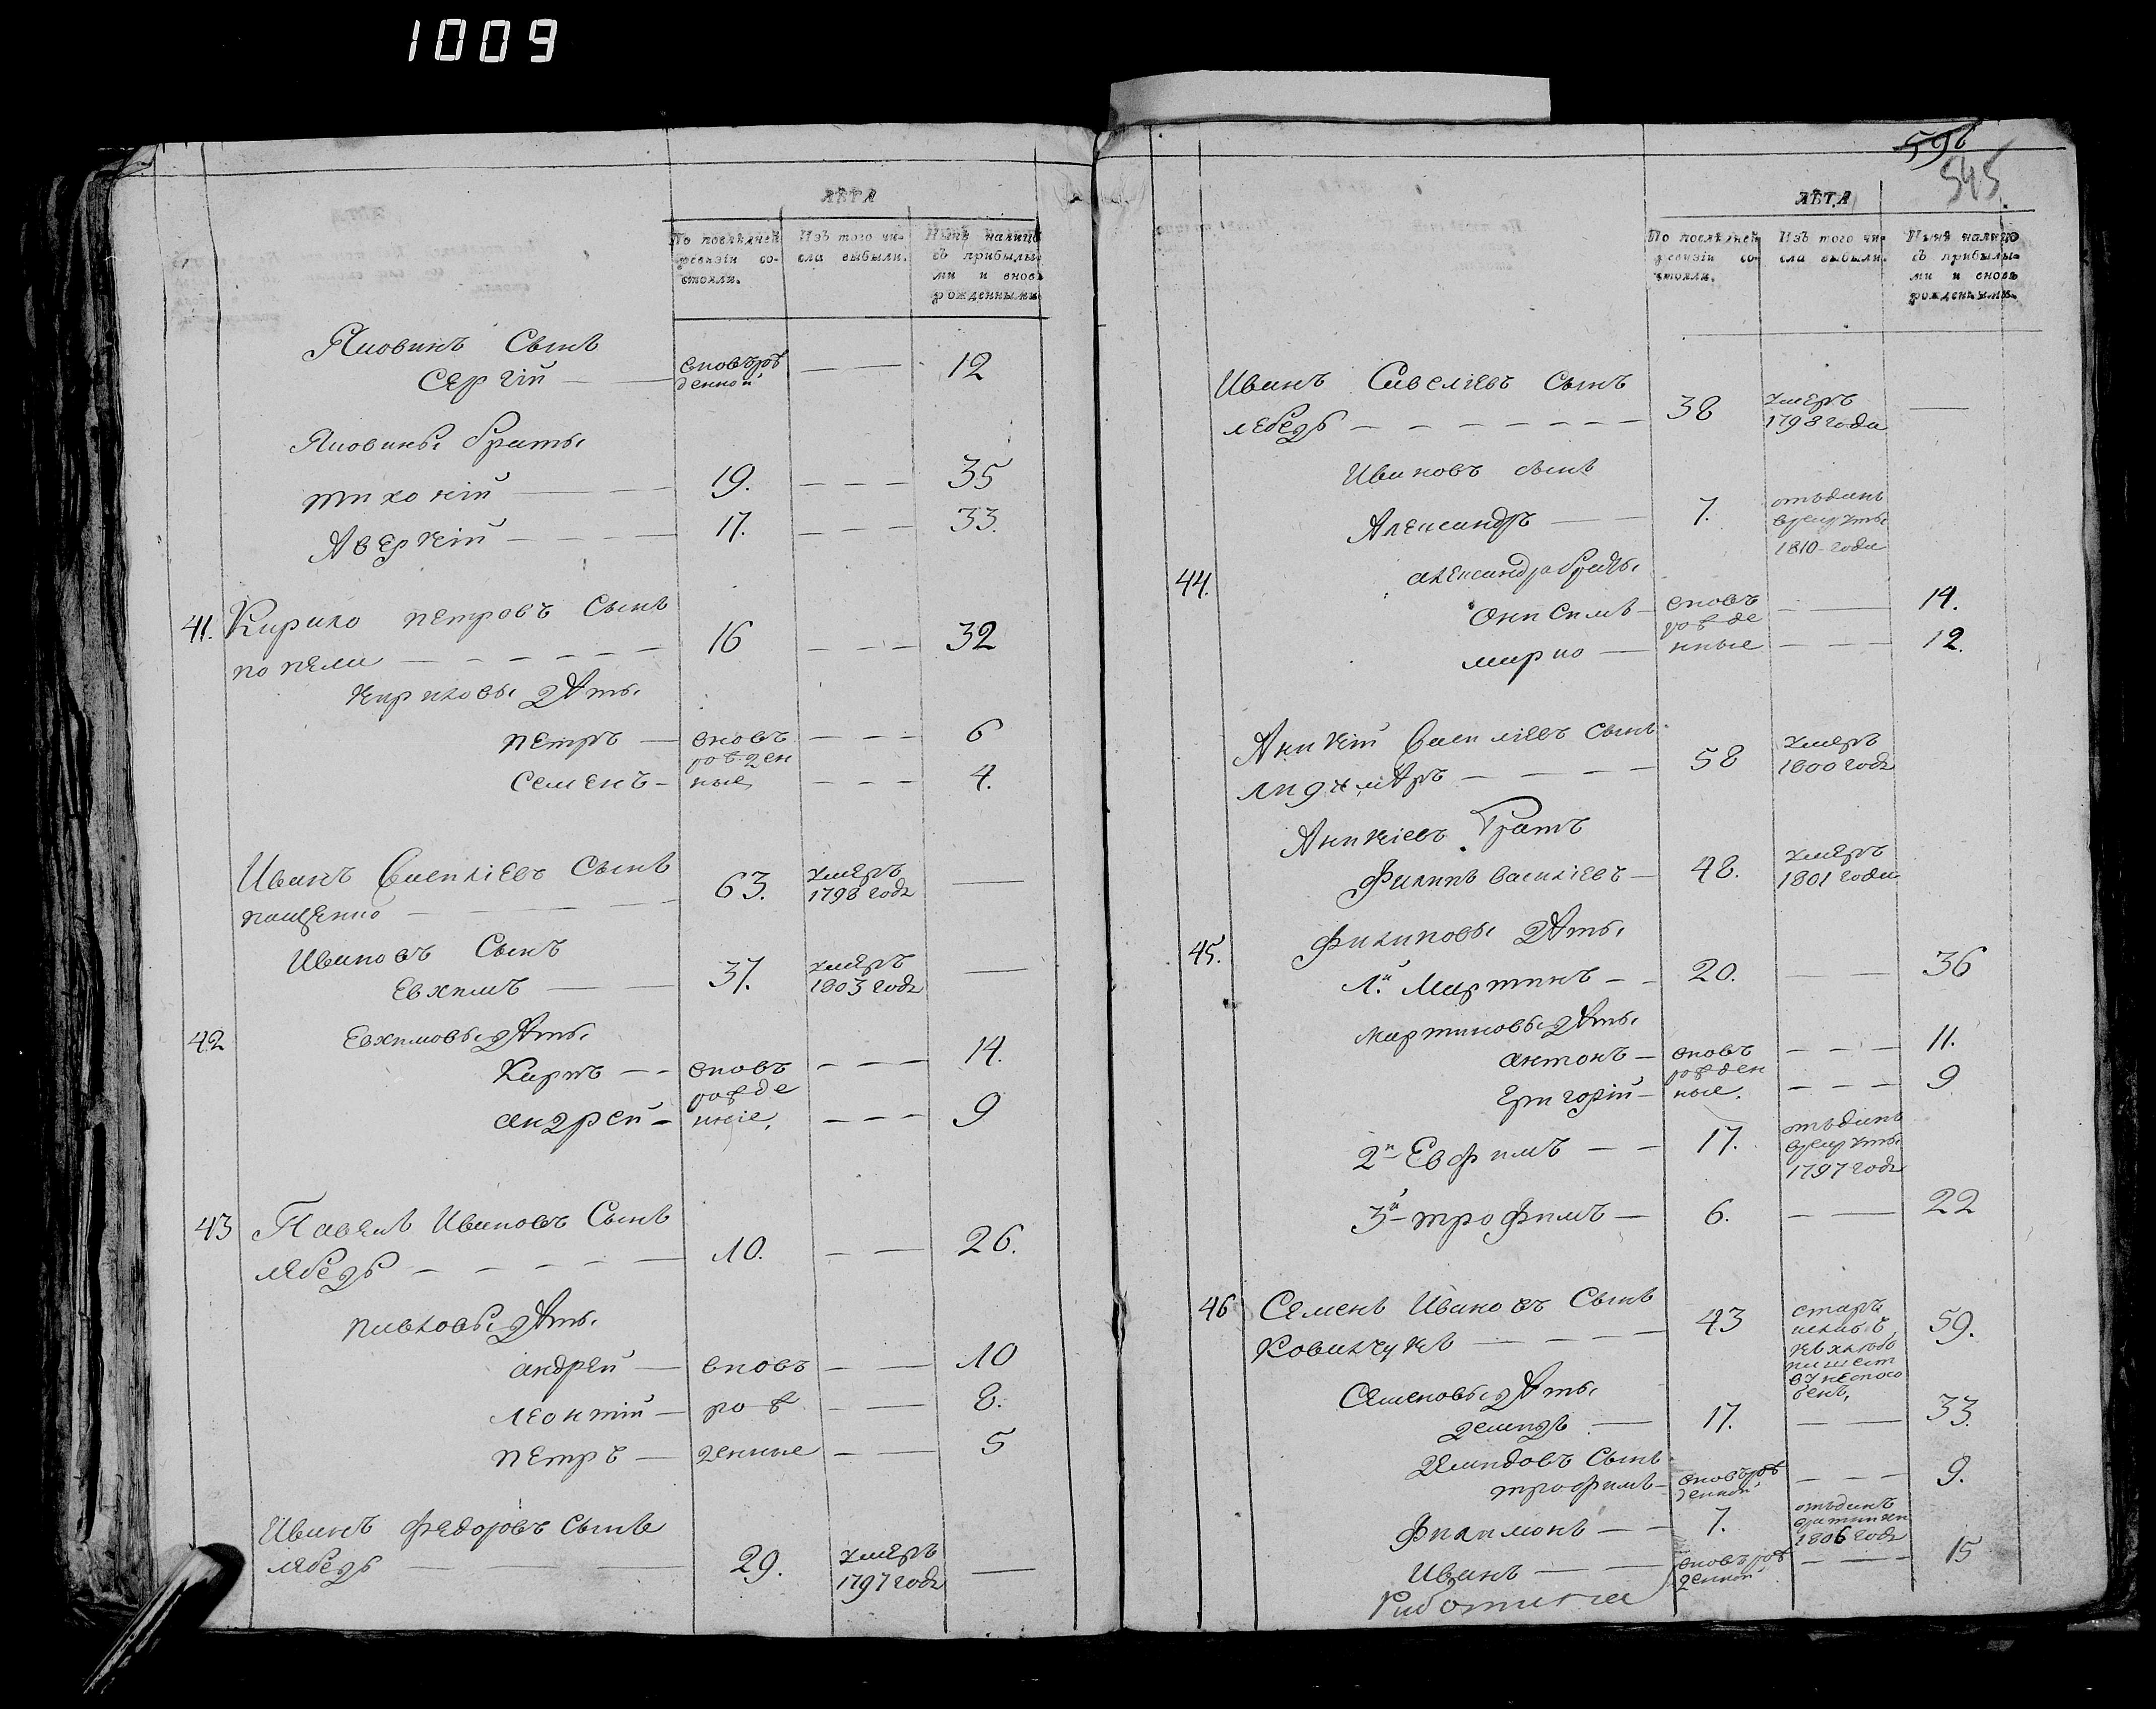 1009
ЛѢТА
По послѣдней ревизіи состояли.
Изъ того числа выбыли.
Нынѣ налицо съ прибылыми и вновь рожденными
Яковихъ Сынъ
Сергій — вновь рожденной — — 12
Яковивы браты
тихоній — 19. — — — 35
Аверкій — — — 17. — — — 33.
41. Кирило петровъ Сынъ
попели — — — — — — 16 — — — 32
Кириловы дѣты
петръ — вновь — — — 6
Семенъ — рожденные — — — 4.
Иванъ Василіевъ Сынъ
пащенко — — — 63. умеръ 1798 года —
Ивановъ Сынъ
Евхимъ — — 37. умеръ 1803 года —
42 Евхимовы дѣты
Карпъ — — вновь — — — 14.
андрей — рожденные, — — — 9
43 Павелъ Ивановъ Сынъ
лебедь — — — — — 10. — — 26.
павловы дѣты
андрей — вновь — — 10
леонтій — рож — — 8.
петръ — денные — — 5
Иванъ Федоровъ Сынъ
лебедь — — 29. умеръ 1797 года —
596
545
ЛѢТА
По послѣдней ревизіи состояли.
Изъ того числа выбыли.
Нынѣ налицо съ прибылыми и вновь рожденными.
Иванъ Савеліевъ Сынъ
лебедь — — — — — — — 38 умеръ 1798 года —
Ивановъ сынъ
Александръ — — 7. отъданъ врекруты 1810 года
44. александра браты
Онисимъ — вновь — — 14.
марко — рожденные — — — 12.
Аникій Василіевъ Сынъ
— — — — 58 умеръ 1800 года
Аникіевъ Братъ
Филипъ василіевъ — 48. умеръ 1801 года
45. филиповы дѣты
1.й Мартинъ — — 20. — — 36
мартиновы дѣты
антонъ — вновь — — — 11.
Григорій — рожденные. — — — 9
2й Евфимъ — — 17. отъданъ врекруты 1797 года
3й трофимъ — 6. — — 22
46 Семенъ Ивановъ Сынъ
Ковальчукъ — — — — 43 59.
Семеновы дѣты
демидъ — 17. — — 33.
Демидовъ Сынъ
трофимъ — вновь рожденной — — — 9.
Филимонъ — — 7. отъданъ 1806 года
Иванъ — — вновь рожденной — — — 15